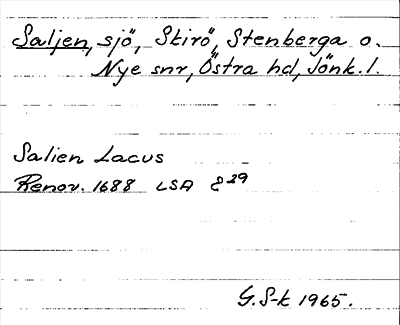 Saljen, sjö, Skirö, Stenberga o.
Nye snr, Östra hd, Jönk. l.
Salien Lacus
Renov. 1688 LSA E²⁹
G. S-k 1965.